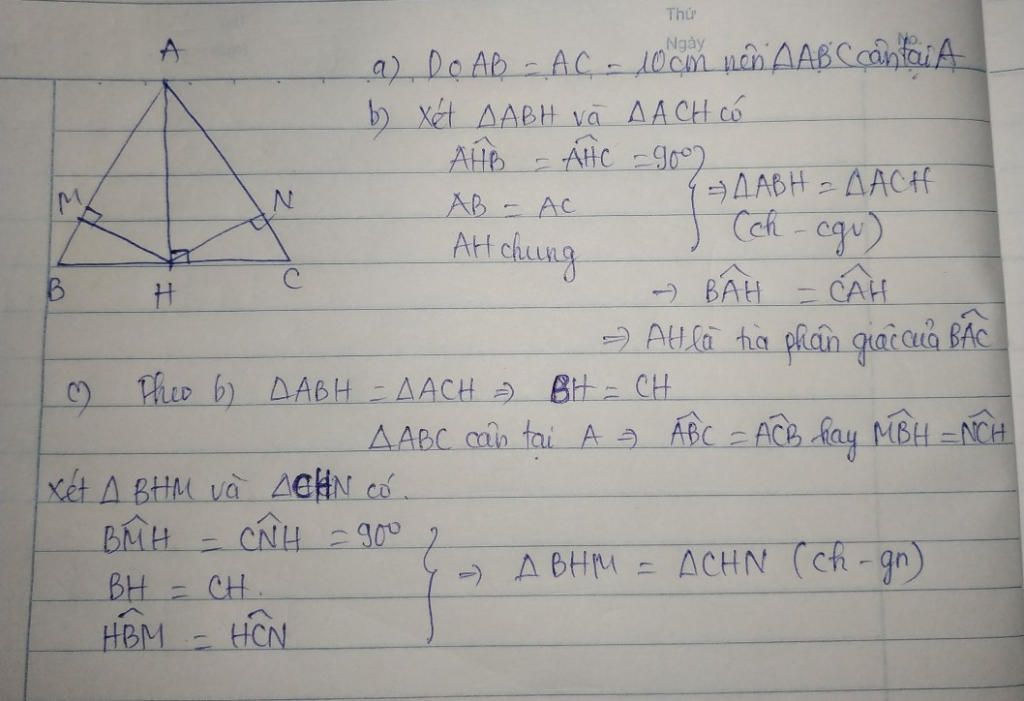 Thứ
Ngày
No.
A
M
N
B
H
C
a) Do AB = AC = 10cm nên ΔABC cân tại A
b) Xét ΔABH và ΔACH có
AĤB = AĤC = 90°
AB = AC
AH chung
⇒ ΔABH = ΔACH
(ch - cgv)
→ BÂH = CÂH
⇒ AH là tia phân giác của BÂC
c) Theo b) ΔABH = ΔACH ⇒ BH = CH
ΔABC cân tại A ⇒ AB̂C = AĈB hay MB̂H = NĈH
Xét ΔBHM và ΔCHN có.
BM̂H = CN̂H = 90°
BH = CH.
HB̂M = HĈN
⇒ ΔBHM = ΔCHN (ch - gn)